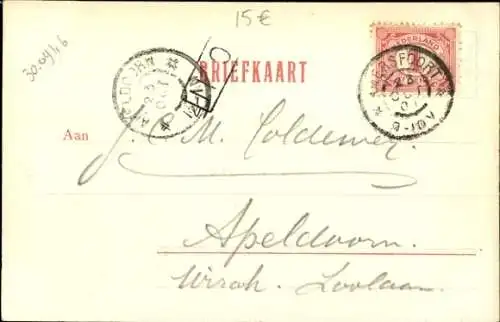 15 €
30.09.46
NEDERLAND
BRIEFKAART
AMERSFOORT
APELDOORN
Aan J. M. Coldewey
Apeldoorn.
Loolaan.